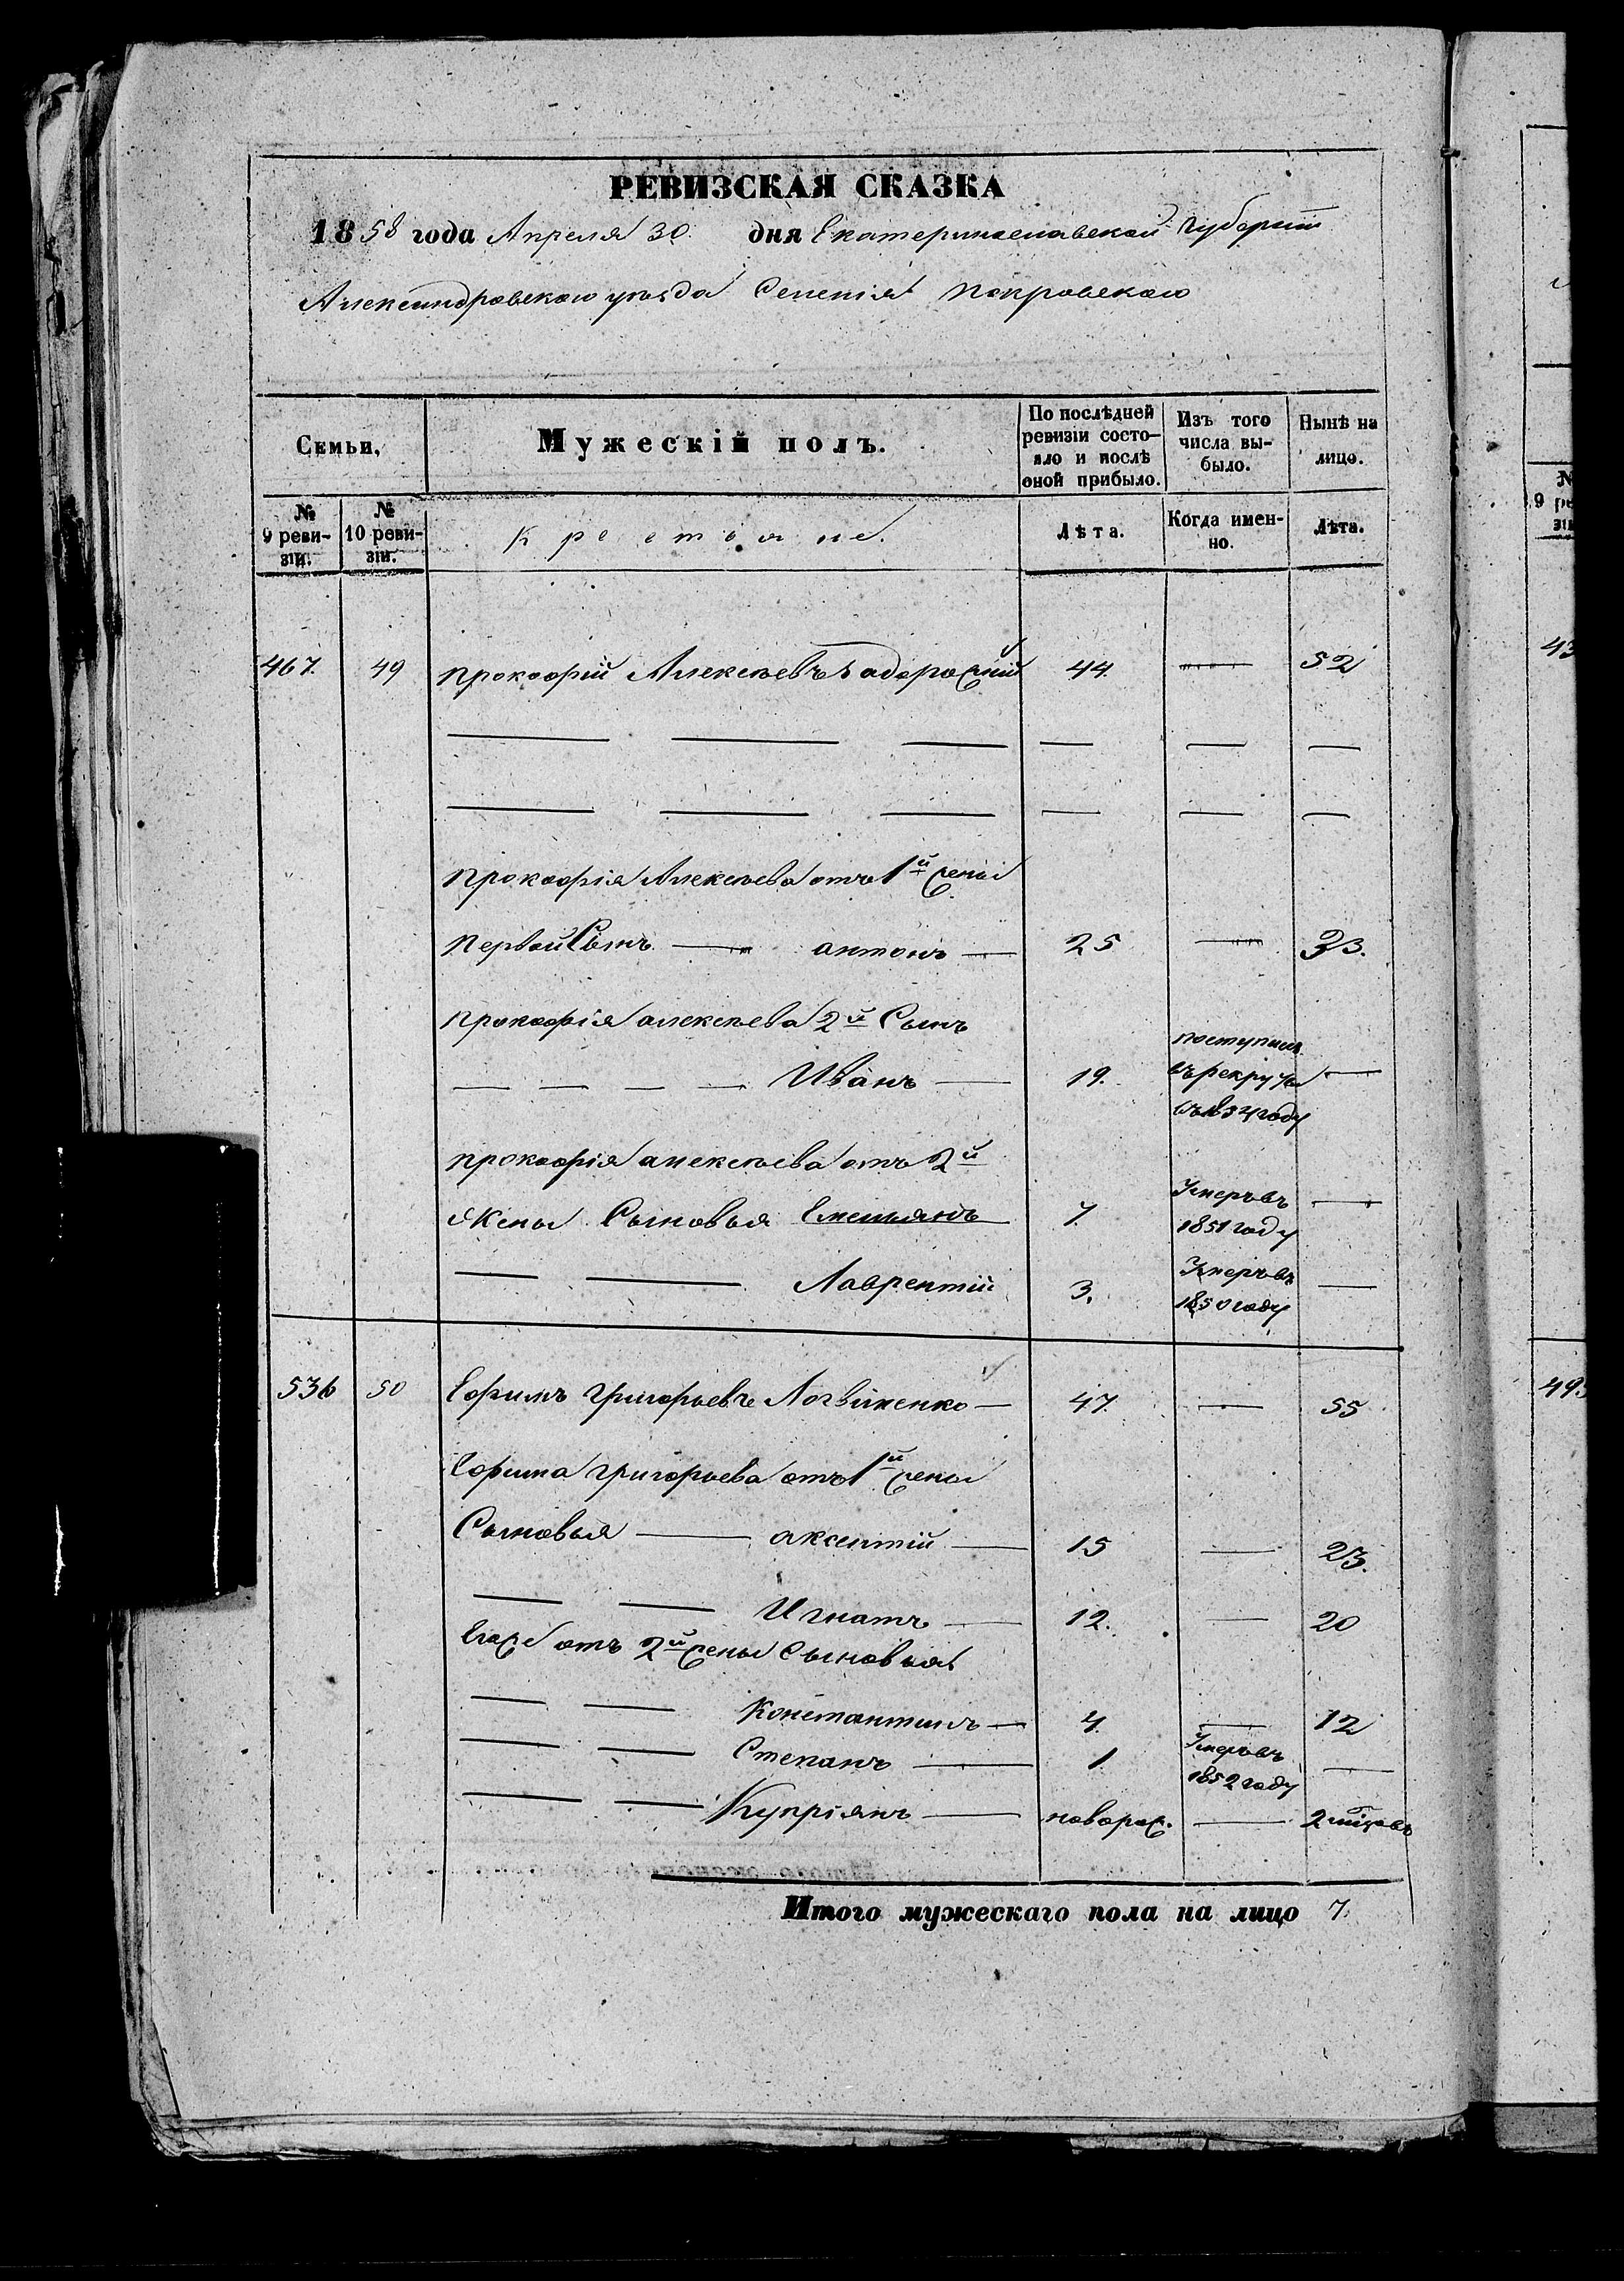 РЕВИЗСКАЯ СКАЗКА
1858 года Апреля 30. дня Екатеринославской Губерніи
Александровскаго уѣзда Селенія Покровскаго
Семьи,
Мужескій полъ.
По послѣдней ревизіи состояло и послѣ оной прибыло.
Изъ того числа выбыло.
Нынѣ на лицо.
№ 9 ревизіи.
№ 10 ревизіи.
Крестьяне.
Лѣта.
Когда именно.
Лѣта.
467. 49 Прокофій Алексѣевъ 44. — 52
Прокофія Алексѣева отъ 1й жены
Первой Сынъ — антонъ — 25 — 33.
Прокофія алексѣева 2й Сынъ
Иванъ — 19. поступилъ въ рекруты въ 1854 году —
прокофія алексѣева отъ 2й
жены Сыновья Емельянъ 7. Умеръ въ 1851 году —
Лаврентій 3. Умеръ въ 1850 году —
536 50 Ефимъ Григорьевъ Логвиненко — 47. — 55
Ефима Григорьева отъ 1й жены
Сыновья — аксентій — 15 — 23.
Игнатъ — 12. — 20
Егоже отъ 2й жены Сыновья
Константинъ — 4. — 12
Степанъ — 1 Умеръ въ 1852 году —
Купріянъ — новорож. — 2 мѣсяцовъ
Итого мужескаго пола на лицо 7.
43
49